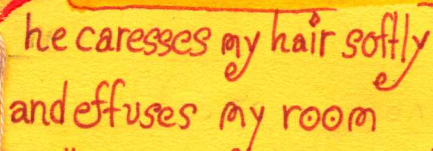 he caresses my hair softly
and effuses my room